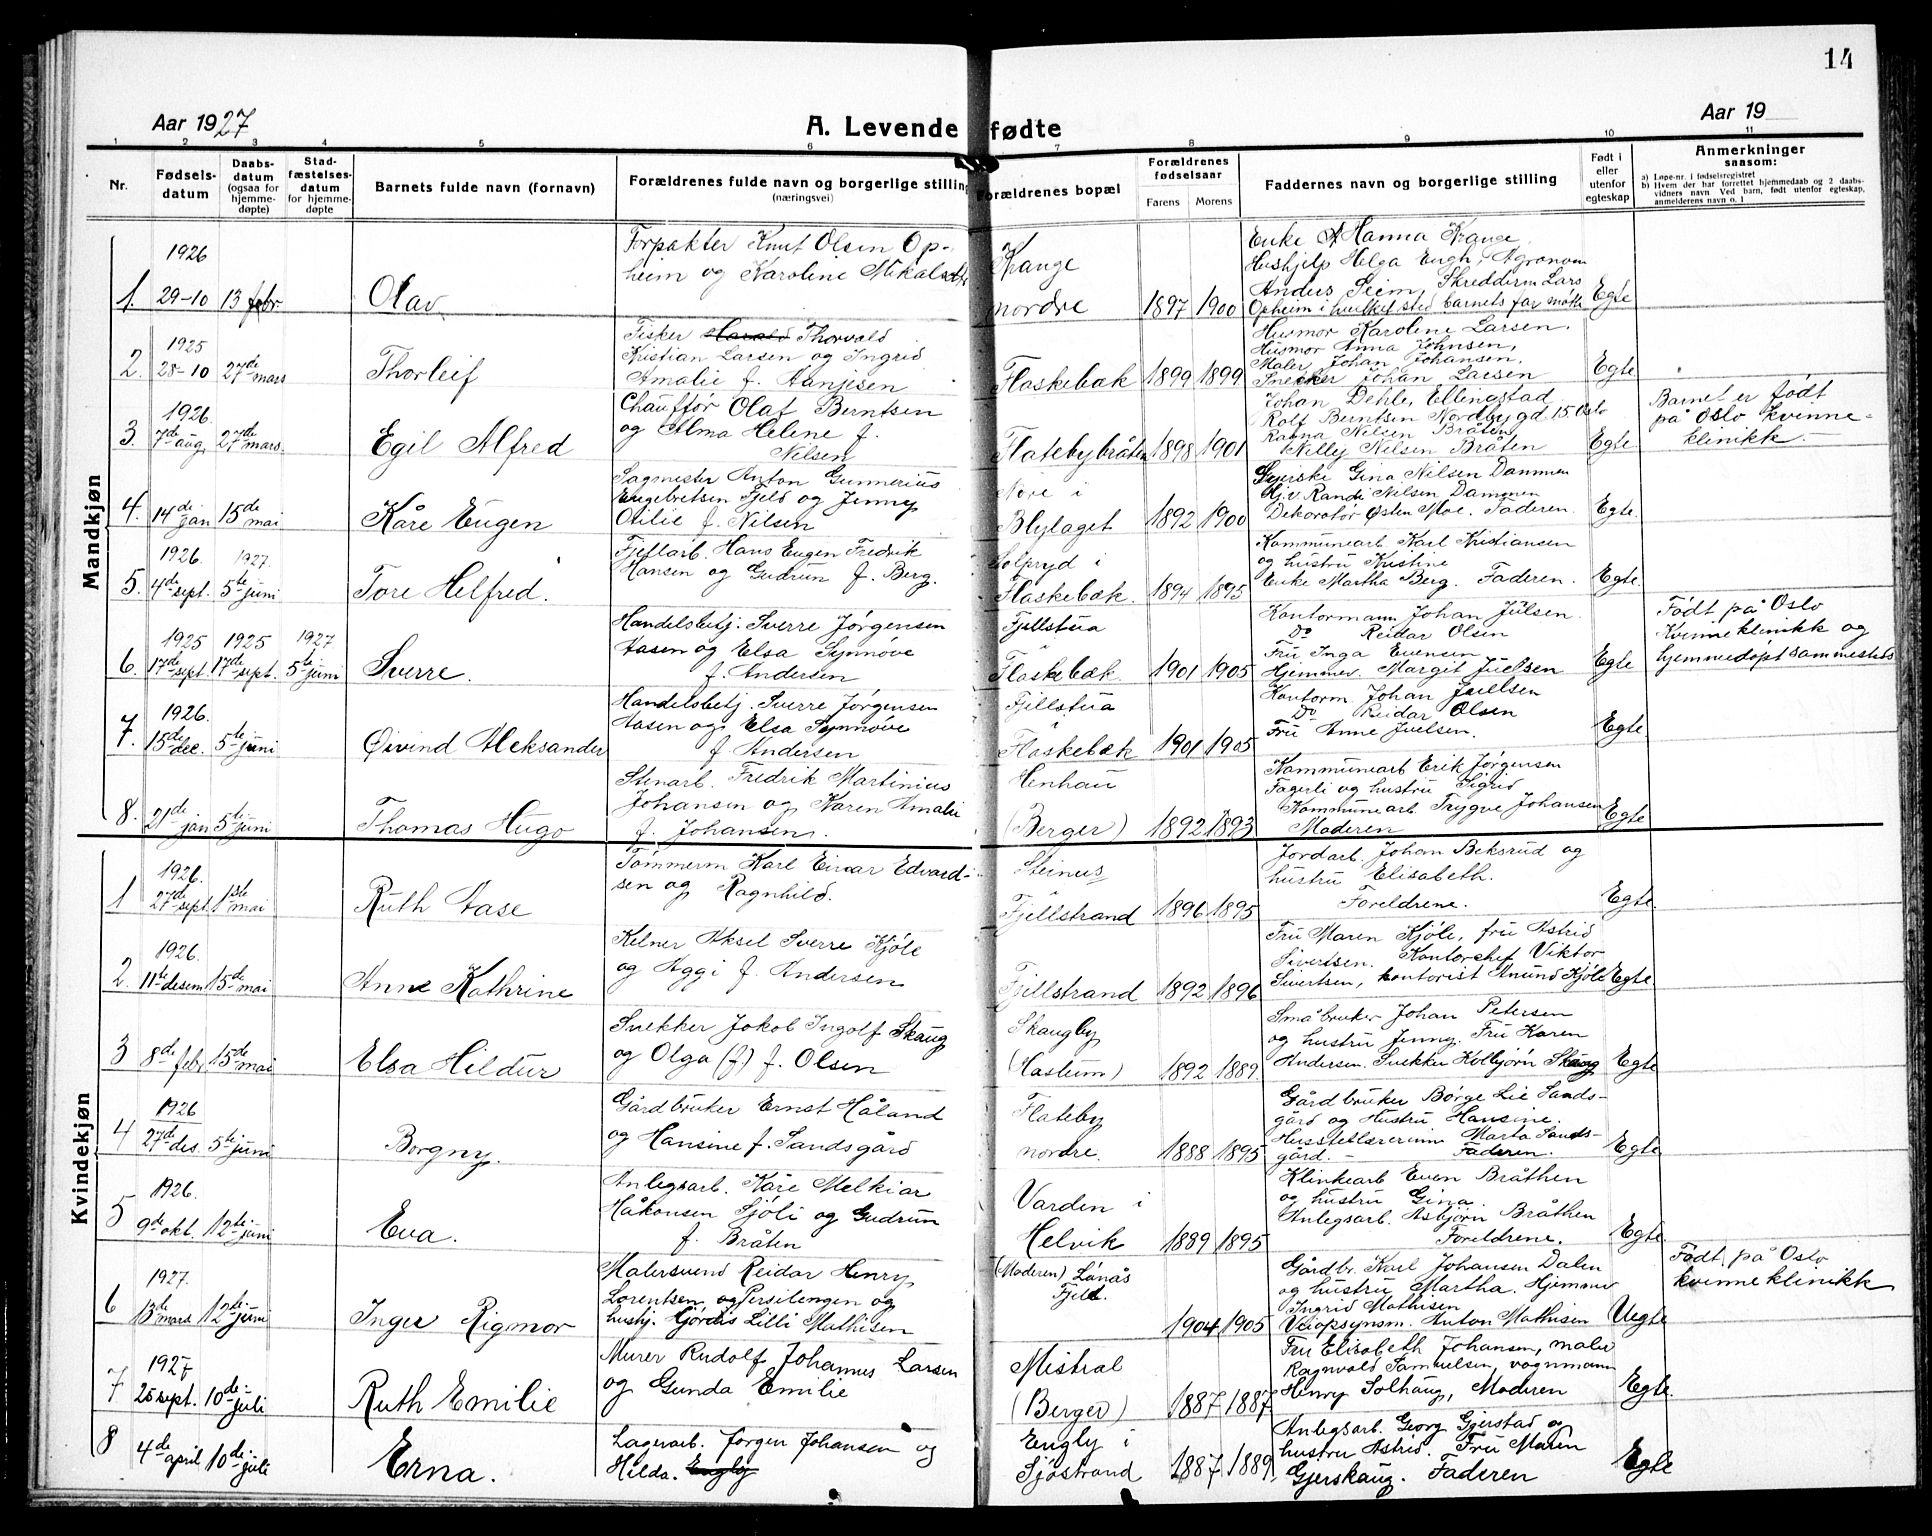 14
Aar 1927
A. Levende fødte
Aar 19
1 2 3 4 5 6 7 8 9 10 11
Nr. Fødsels-datum Daabs-datum (ogsaa for hjemme-døpte) Stad-fæstelses-datum for hjemme-døpte Barnets fulde navn (fornavn) Forældrenes fulde navn og borgerlige stilling (næringsvei) Forældrenes bopæl Forældrenes fødselsaar Farens Morens Faddernes navn og borgerlige stilling Født i eller utenfor egteskap Anmerkninger saasom:
a) Løpe-nr. i fødselsregistret
b) Hvem der har forrettet hjemmedaab og 2 daabs-
vidners navn Ved barn, født utenfor egteskap,
anmelderens navn o. l
Mandkjøn
1. 1926 29-10 13 febr. Olav
Forpakter Knut Olsen Op-
heim og Karoline Mikalsdtr
Krange
nordre 1897 1900
Enke Hanna Krange
Hushjelp Helga Engh, Agronom
Anders Seim, Skredderm Lars
Opheim i hvilket sted barnets far møtte
Egte
2. 1925 28-10 27de mars Thorleif
Fisker Harald Thorvald
Kristian Larsen og Ingrid
Amalie f. Hanjesen
Flaskebæk 1899 1899
Husmor Karolene Larsen.
Husmor Anna Johnsen,
Maler Johan Johansen.
Snekker Johan Larsen
Egte
3. 1926 7de aug. 27de mars. Egil Alfred
Chauffør Olaf Berntsen
og Alma Helene f.
Nilsen
Flatebybråten 1898 1901
Johan Dehle, Ellingstad
Rolf Berntsen Nordbygd. 15 Oslo
Ragna Nilsen Bråten
Nilly Nilsen Bråten
Egte
Barnet er født
på Oslo kvinne-
klinikk.
4. 14de jan 15de mai Kåre Eugen
Sagmester Anton Gunnerius
Engebretsen Fjeld og Jenny
Otilie f. Nilsen
Nore i
Blylaget 1892 1900
Syerske Gina Nilsen Dammen
Hj.v. Randi Nilsen Dammen
Dekoratør Østen Moe. Faderen.
Egte.
5. 1926 4de sept. 1927. 5te juni Tore Helfred.
Fjellarb. Hans Eugen Fredrik
Hansen og Gudrun f. Berg.
Solpryd i
Flaskebæk. 1894 1895
Kommunearb Karl Kristiansen
og hustru Kristine
Enke Martha Berg. Faderen.
Egte.
6. 1925 17de sept. 1925 17de sept. 1927 5te juni Sverre.
Handelsbetj. Sverre Jørgensen
Aasen og Elsa Synnøve
f. Andersen
Fjellstua
Flaskebæk. 1901 1905
Kontormann Johan Jülsen
Do Reidar Olsen
Fru Inga Evensen
Hjemmev. Margit Juelsen
Egte
Født på Oslo
Kvinneklinikk og
hjemmedøpt sammesteds
7. 1926. 15de dec. 5te juni Øivind Aleksander
Handelsbetj. Sverre Jørgensen
Aasen og Elsa Synnøve
f Andersen
Fjellstua
i
Flaskebæk 1901 1905
Kontorm Johan Juelsen
Do Reidar Olsen
Fru Anne Juelsen.
Egte
8. 21de jan 5te juni Thomas Hugo
Stenarb. Fredrik Martinius
Johansen og Karen Amalie
f. Johansen.
Henhau
(Berger) 1892 1893
Kommunearb Erik Jørgensen
Fagerli og hustru Sigrid
Kommunearb. Trygve Johansen
Moderen
Egte
Kvindekjøn
1 1926. 27de sept. 1ste mai Ruth Aase
Tømmerm Karl Einar Edvard-
sen og Ragnhild.
Steinus
Fjellstrand 1896 1895
Jordarb Johan Beksrud og
hustru Elisabeth.
Foreldrene.
Egte.
2. 1926. 11te desem 15de mai Anne Kathrine
Kelner Aksel Sverre Kjøle
og Aggi f. Andersen
Fjellstrand 1892 1896
Fru Maren Kjøle, fru Astrid
Sivertsen. Kontorchef Viktor
Sivertsen, kontorist Anund Kjöle
Egte.
3 8de febr 15de mai Elsa Hildur
Snekker Jokob Ingolf Skaug
og Olga (f) f. Olsen
Skaugby
(Hastum) 1892 1889.
Småbruker Johan Petersen
og hustru Jenny. Fru Karen
Andersen. Snekker Kolbjørn Skaug
Egte
4 1926 27de des. 5te juni Borgny.
Gårdbruker Ernst Håland
og Hansine f. Sandsgård
Flateby
nordre. 1888 1895
Gårdbruker Børge Lie Sands-
gård og Hustru Hansine.
Husstellærerinn Marta Sands-
gård. - Faderen.
Egte
5 1926. 9de okt. 12te juni Eva.
Anlegsarb. Kåre Melkiar
Håkonsen Sjöli og Gudrun
f. Bråten
Varden i
Helvik 1889 1895
Klinkearb Even Bråthen
og hustru Gina
Anlegsarb. Asbjörn Bråthen
Foreldrene.
Egte.
6 1927. 13de mars 12te juni Inger Rigmor
Malersvend Reidar Henry
Lorentsen og Persilengen og
hushj. Hjördis Lilli Mathisen
(Moderen) Lönås
Fjeld. 1904 1905
Gårdbr. Karl Johansen Dalen
og hustru Martha. Hjemmev
Ingrid Mathisen
Veiopsynsm. Anton Mathisen
Uegte
Født på Oslo
kvinneklinikk
7 1927 25 sept. 10de juli Ruth Emilie
Murer Rudolf Johannes Larsen
og Gunda Emilie
Mistral
(Berger) 1887 1887
Fru Elisabeth Johansen, maler
Ragnvald Samuelsen, vognmann
Henry Solhaug, Moderen
Egte
8 4de april 10de juli Erna.
Lagerarb. Jørgen Johansen og
Hilda. Engly
Engly i
Sjöstrand 1887 1889.
Anlegsarb. Georg Gjerstad og
hustru Astrid. Fru Maren
Gjerskaug. Faderen
Egte